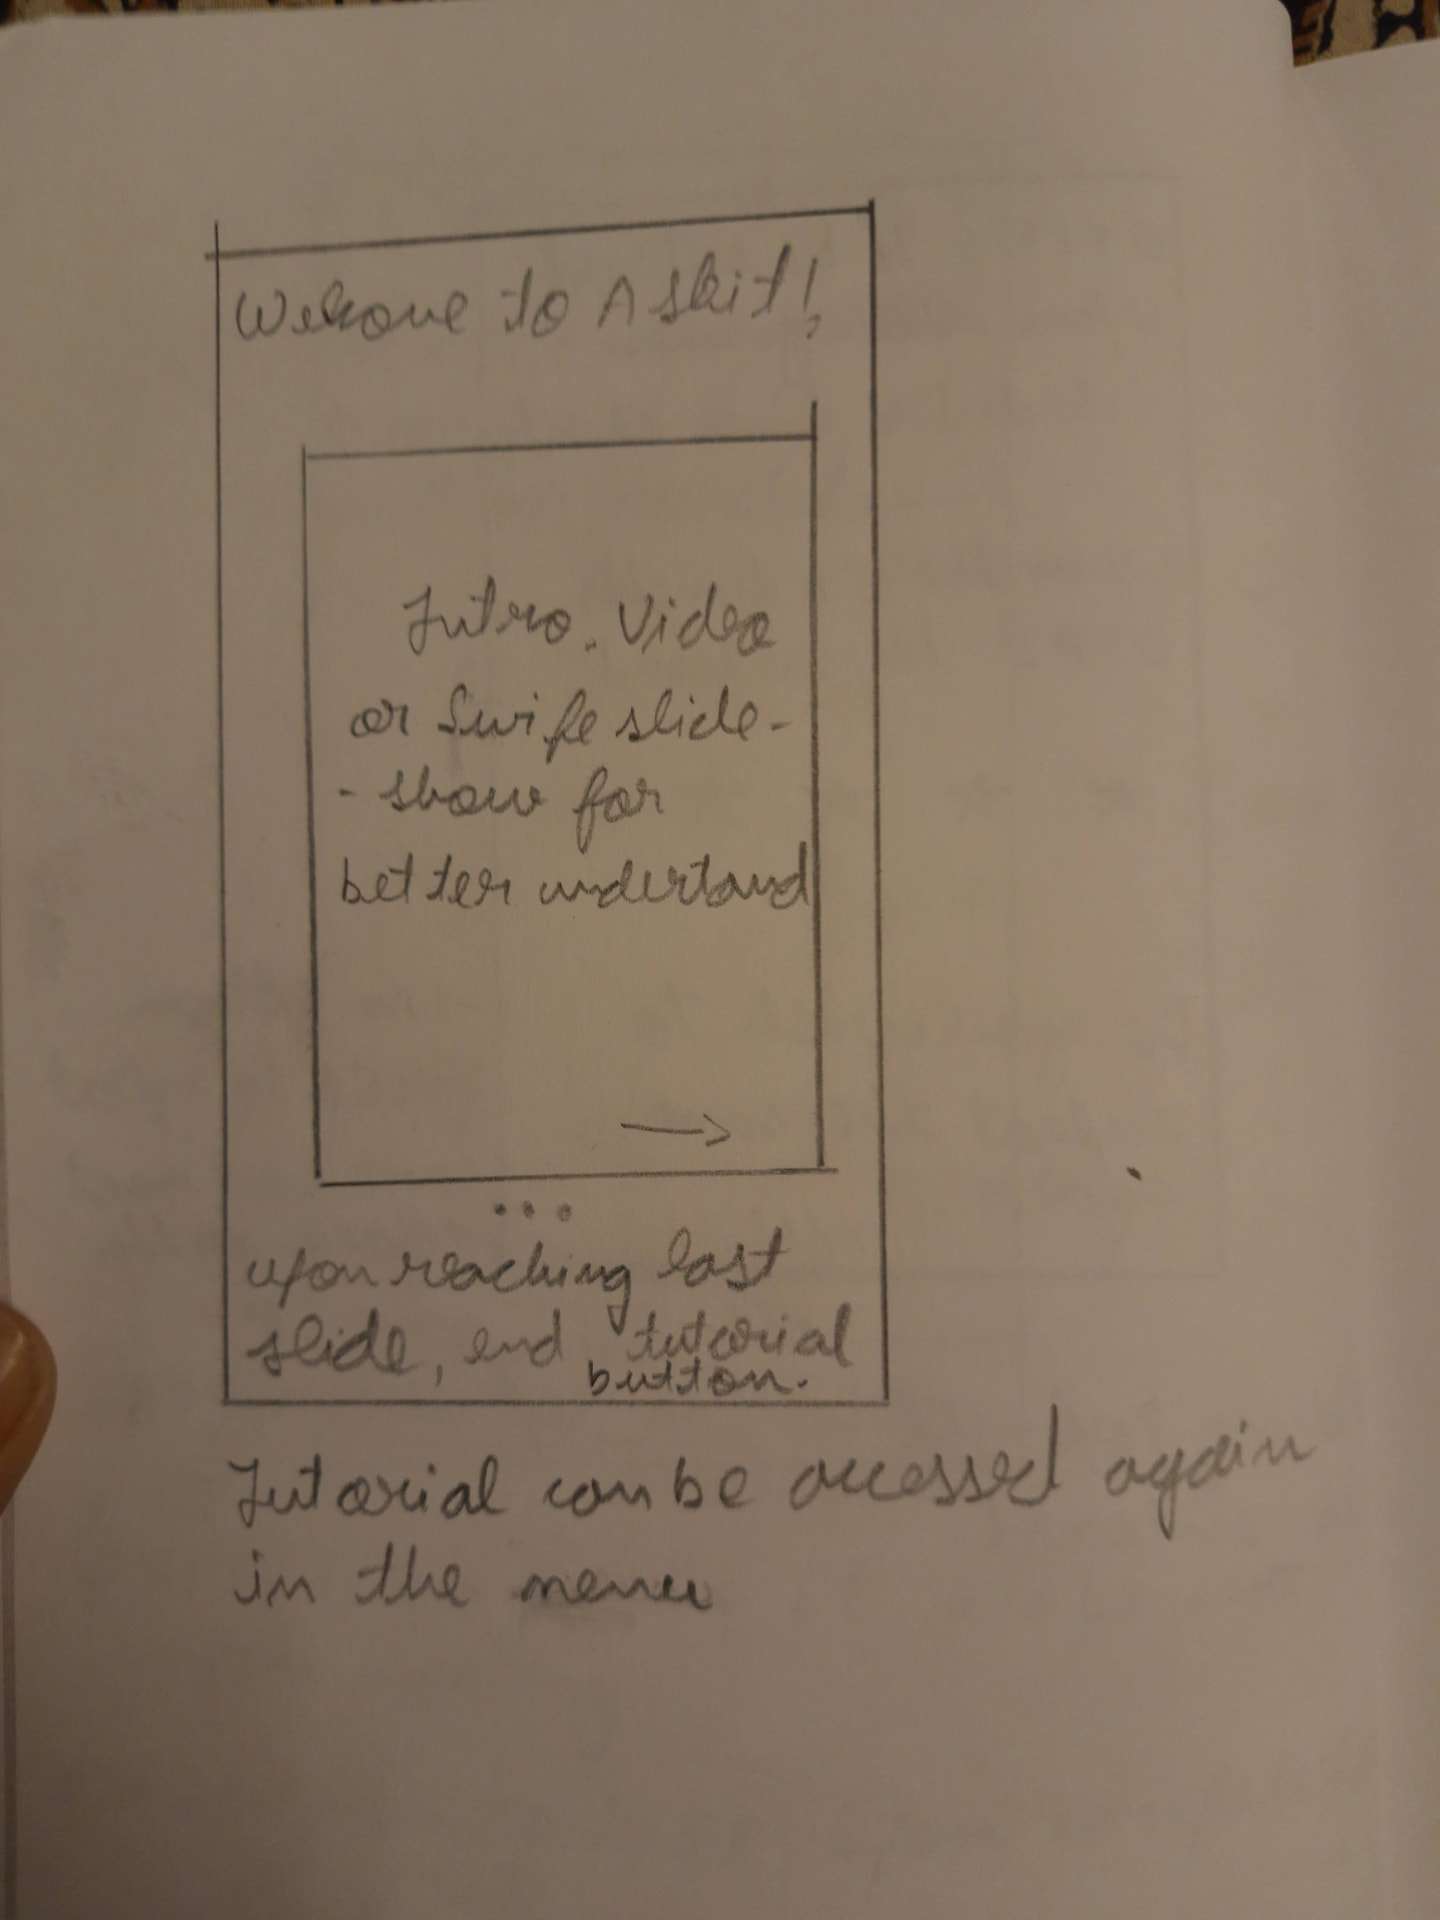 Welcome to Askit!
Intro. Video
or Swipe slide-
- show for
better undertand
→
...
upon reaching last
slide, end tutorial
button.
Tutorial can be accessed again
in the menu